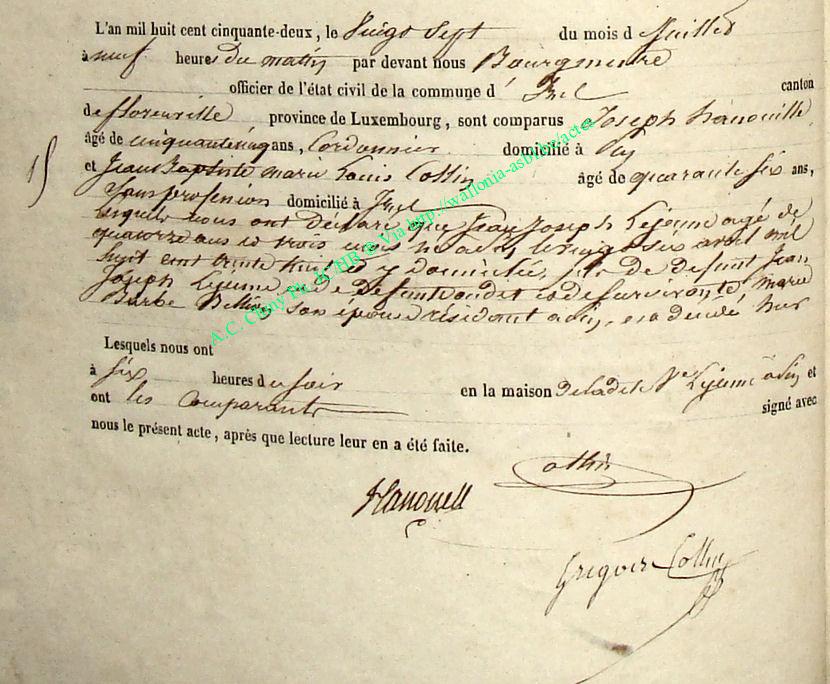 L'an mil huit cent cinquante-deux, le vingt sept du mois d Juillet
à neuf heures du matin par devant nous Bourgmestre
officier de l'état civil de la commune d' Izel canton
de florenville province de Luxembourg, sont comparus Joseph hanouille
âgé de cinquante cinq ans, Cordonnier domicilié à
et Jean Baptiste marie Louis Collin âgé de quarante six ans,
Sans profession domicilié à Izel
lesquels nous ont déclaré que Jean Joseph Lejeune agé de
quatorze ans et trois mois né à le vingt six avril mil
huit cent trente huit et y domicilié, fils de defunt Jean
Joseph Lejeune et de survivante marie
Barbe son épouse résidant a est décédé hier
Lesquels nous ont
à six heures du soir en la maison de ladite Ve Lejeune et
ont les comparants signé avec
nous le présent acte, après que lecture leur en a été faite.
Collin
Hanouill
Grégoire Collin
15
A.C. Chiny Ph. © HB © Via http://wallonia-asbl.be/actes